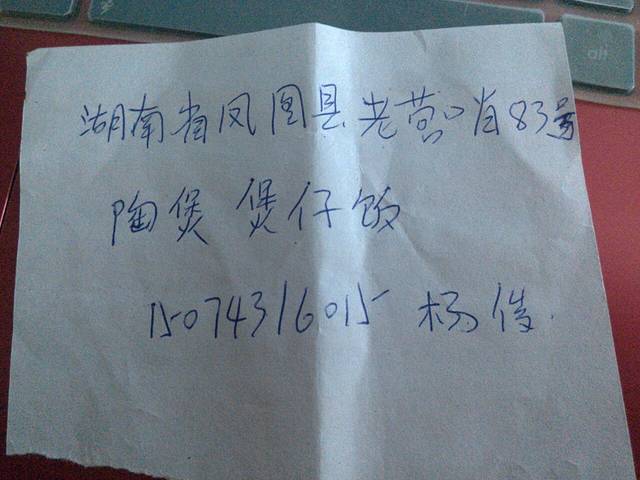 湖南省凤凰县老营哨83号
陶煲 煲仔饭
15074316015 杨俊.
alt